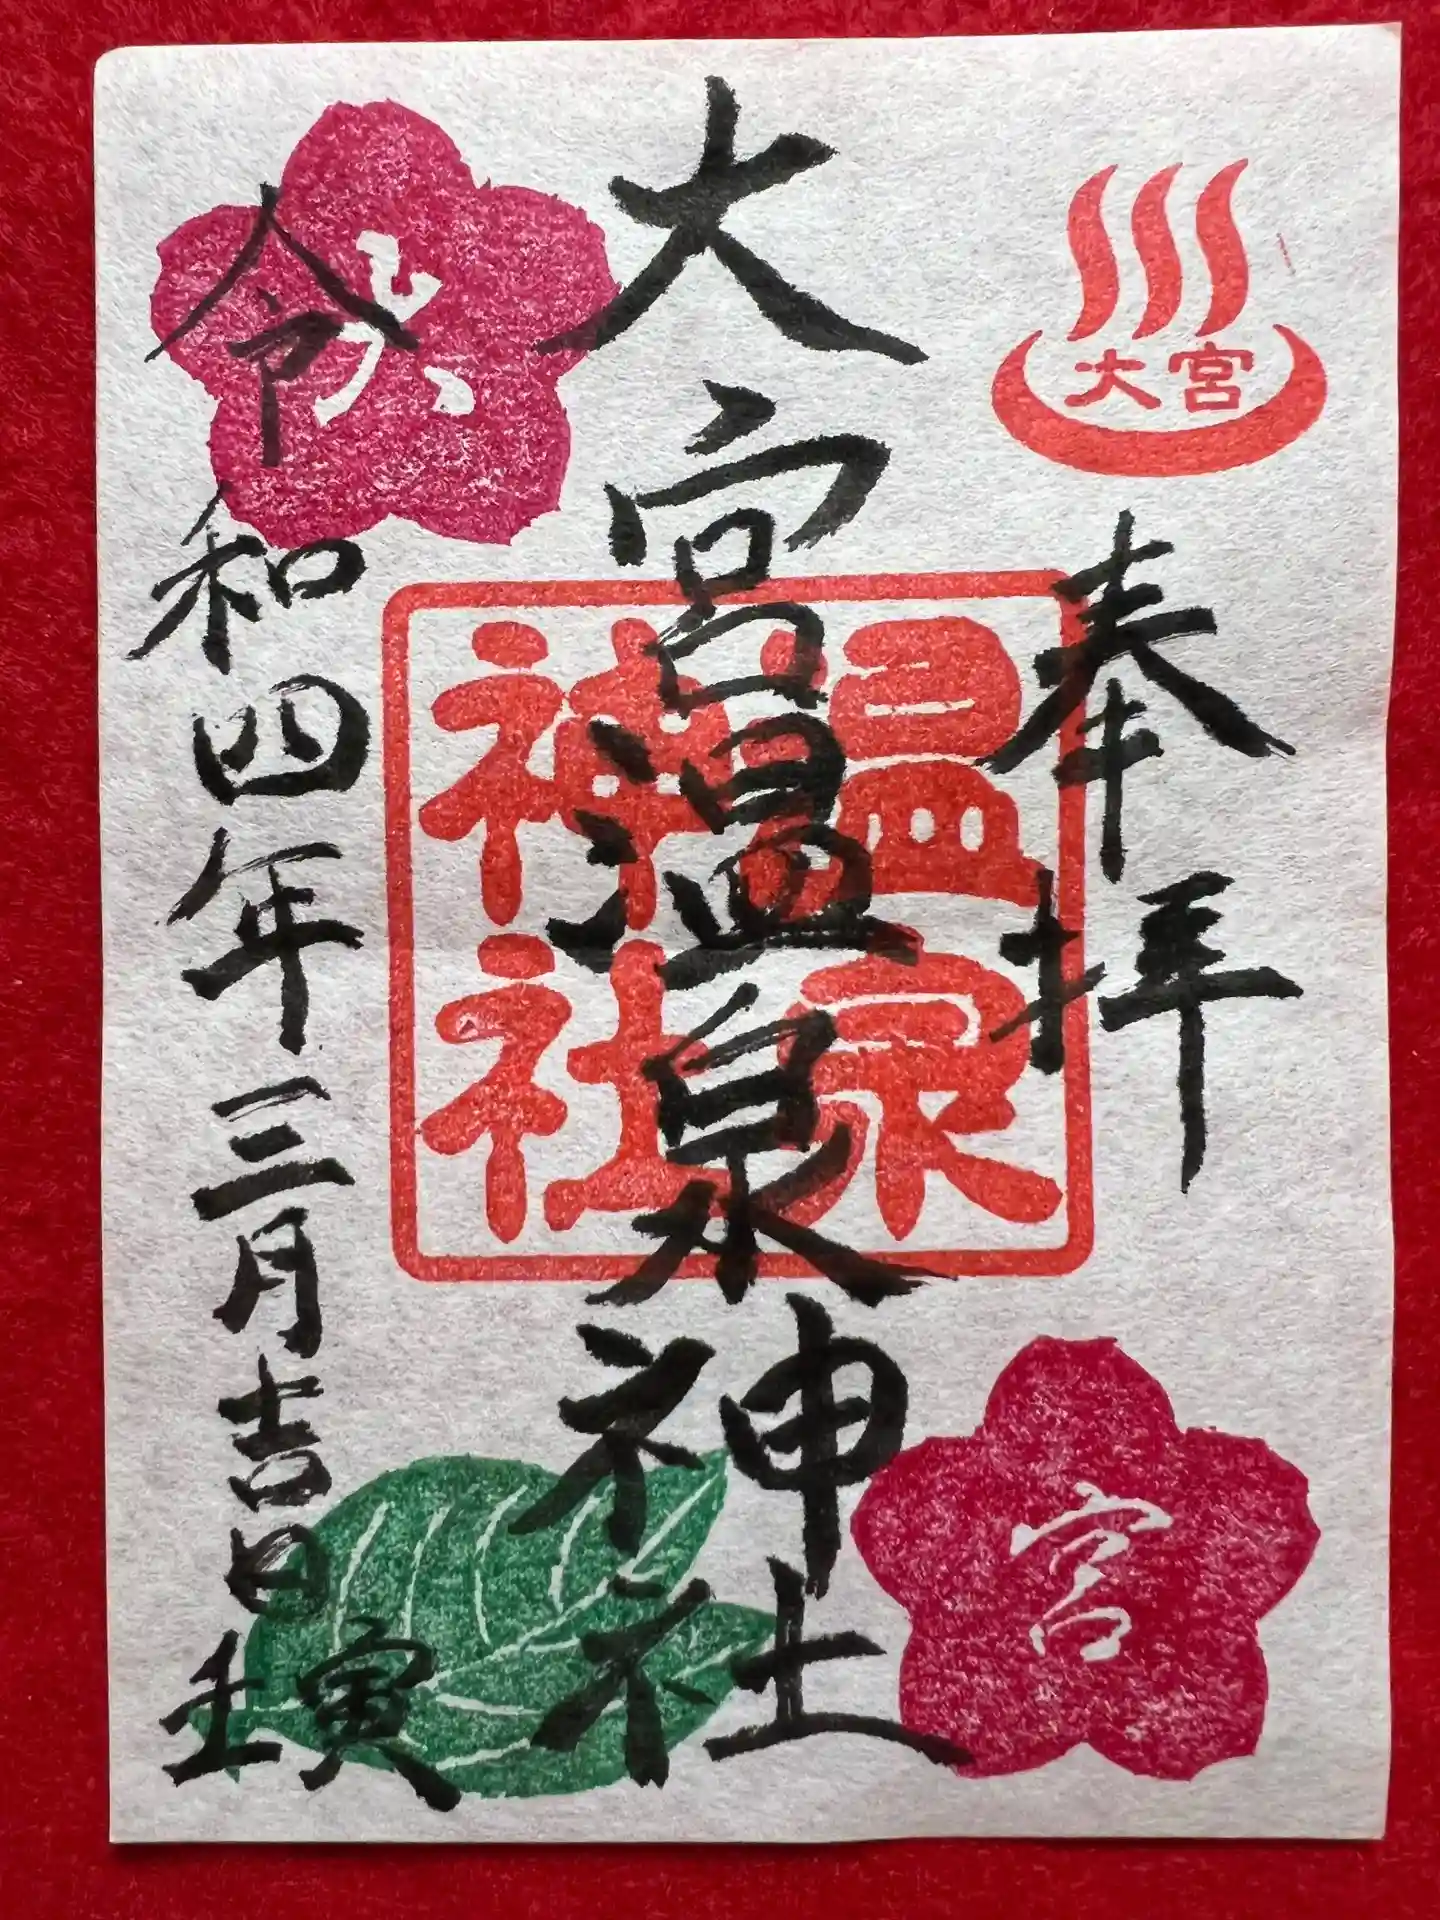 大宮
奉拝
大宮温泉神社
温泉
神社
令和四年三月吉日
壬寅
大
宮